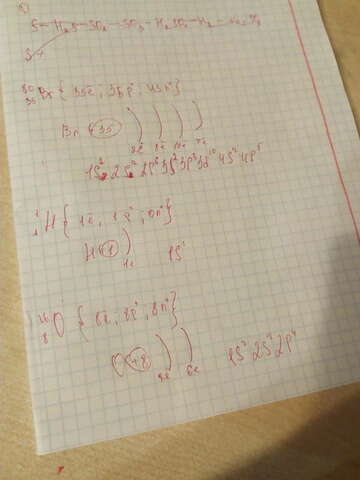 S - H₂S - SO₂ - SO₃ - H₂SO₄ - H₂
S+
⁸⁰₃₅Br { 35ē; 35p⁺; 45n⁰ }
Br +35 ) ) ) )
2ē 8ē 18ē 7ē
1S² 2S² 2P⁶ 3S² 3P⁶ 3d¹⁰ 4S² 4P⁵
¹₁H { 1ē, 1p⁺; 0n⁰ }
H +1 )
1ē 1S¹
¹⁶₈O { 8ē; 8p⁺; 8n⁰ }
O +8 ) )
2ē 6ē 1S² 2S² 2P⁴